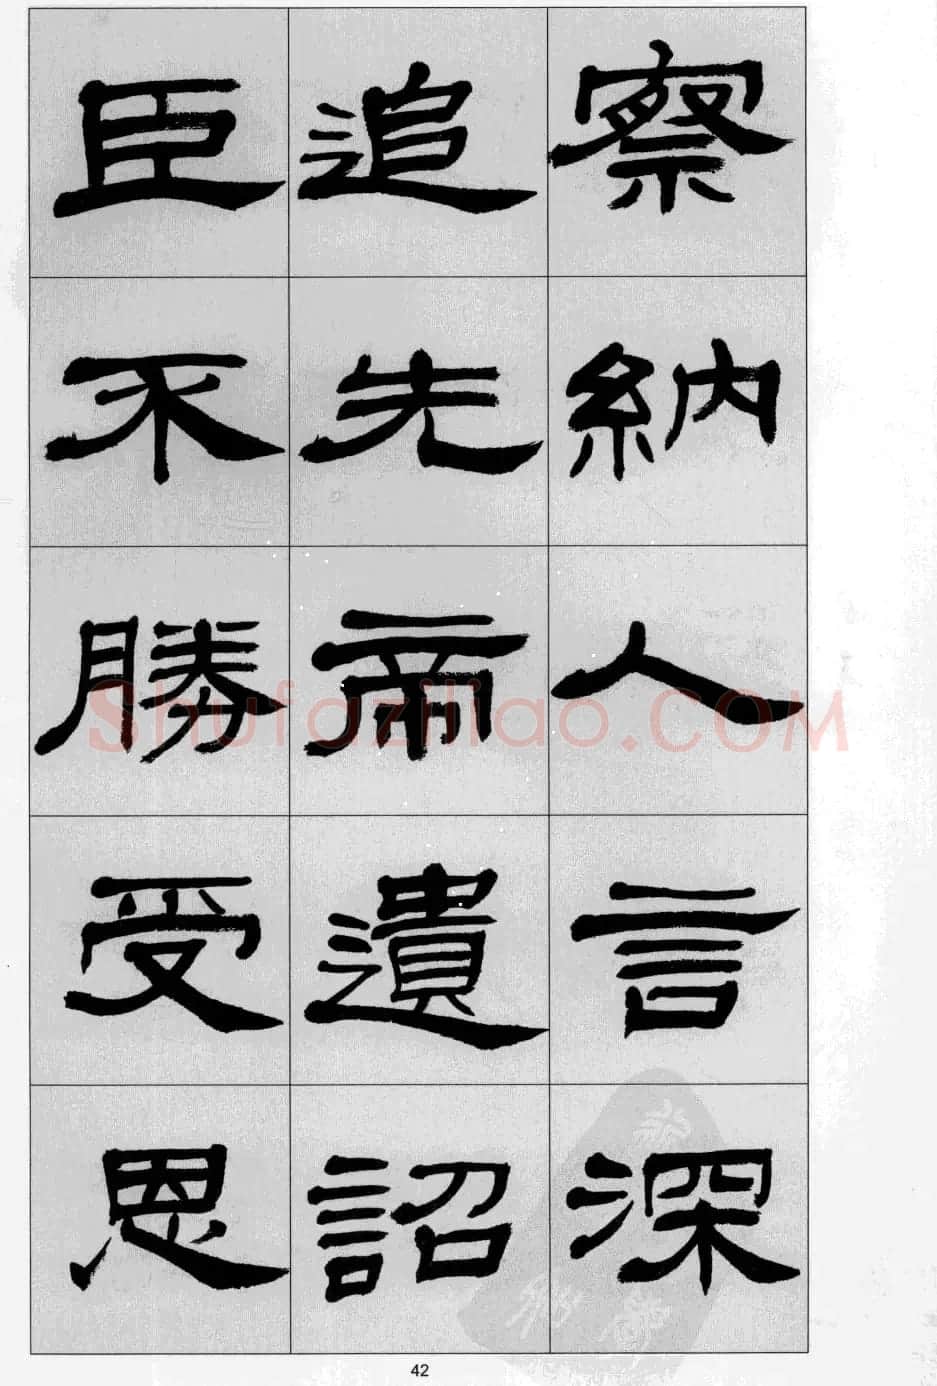 察納人言深
追先帝遺詔
臣不勝受恩
Shufaziliao.COM
42